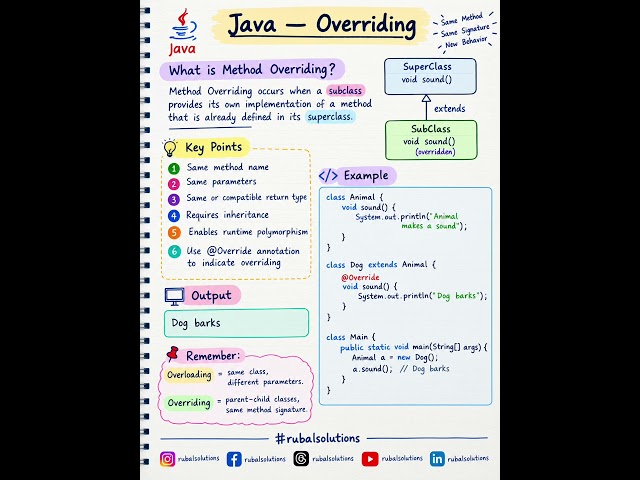 Java
Java — Overriding
Same Method
Same Signature
New Behavior
What is Method Overriding?
Method Overriding occurs when a subclass
provides its own implementation of a method
that is already defined in its superclass.
SuperClass
void sound()
extends
SubClass
void sound()
(overridden)
Key Points
1 Same method name
2 Same parameters
3 Same or compatible return type
4 Requires inheritance
5 Enables runtime polymorphism
6 Use @Override annotation
to indicate overriding
</> Example
class Animal {
void sound() {
System.out.println("Animal
makes a sound");
}
}
class Dog extends Animal {
@Override
void sound() {
System.out.println("Dog barks");
}
}
class Main {
public static void main(String[] args) {
Animal a = new Dog();
a.sound(); // Dog barks
}
}
Output
Dog barks
Remember:
Overloading = same class,
different parameters.
Overriding = parent-child classes,
same method signature.
#rubalsolutions
rubalsolutions
rubalsolutions
rubalsolutions
rubalsolutions
rubalsolutions